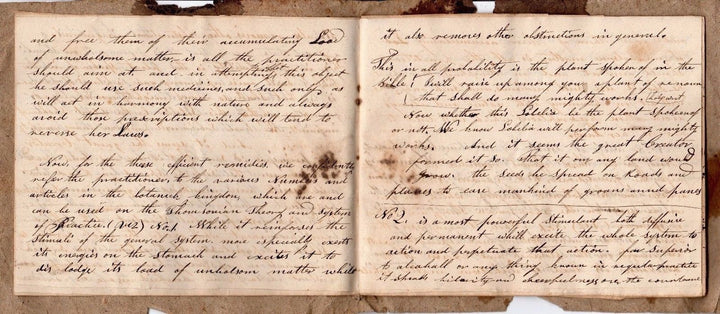 and free them of their accumulating Load
of unwholsome matter, is all the practitioner
should aim at and in attempting this object
he should use such medicines, and such only, as
will act in harmony with native and always
avoid those prescriptions which will tend to
reverse her Laws.
Now for the these efficient remidies we confidently
refer the practitioner to the various Numbers and
articles in the botanck kingdom, which are and
can be used on the Thomsonian Theory and System
of Practice (viz) No 1. While it reinforces the
Stimuli of the general System more especially exerts
its energies on the Stomach and excites it to
dis lodge its load of unholsom matter whilst
it also removes other obstructions in general.
This in all probability is the plant spoken of in the
Bible! I will raise up among you a plant of renown
that shall do many mighty works.
Now whether this Lobelia be the plant spoken of
or not, We know Lobelia will perform many mighty
works. And it seems the great Creator
formed it so that it on any land would
grow. the Seeds he spread on Roads and
places to ease mankind of groans and panes
No 2. is a most powerful Stimulant both diffusive
and permanent whilt excite the whole System to
action and perpetuate that action, far Superior
to alcahall or any thing known in regular practice
it Sheads hilarity and chearfulness over the countenance